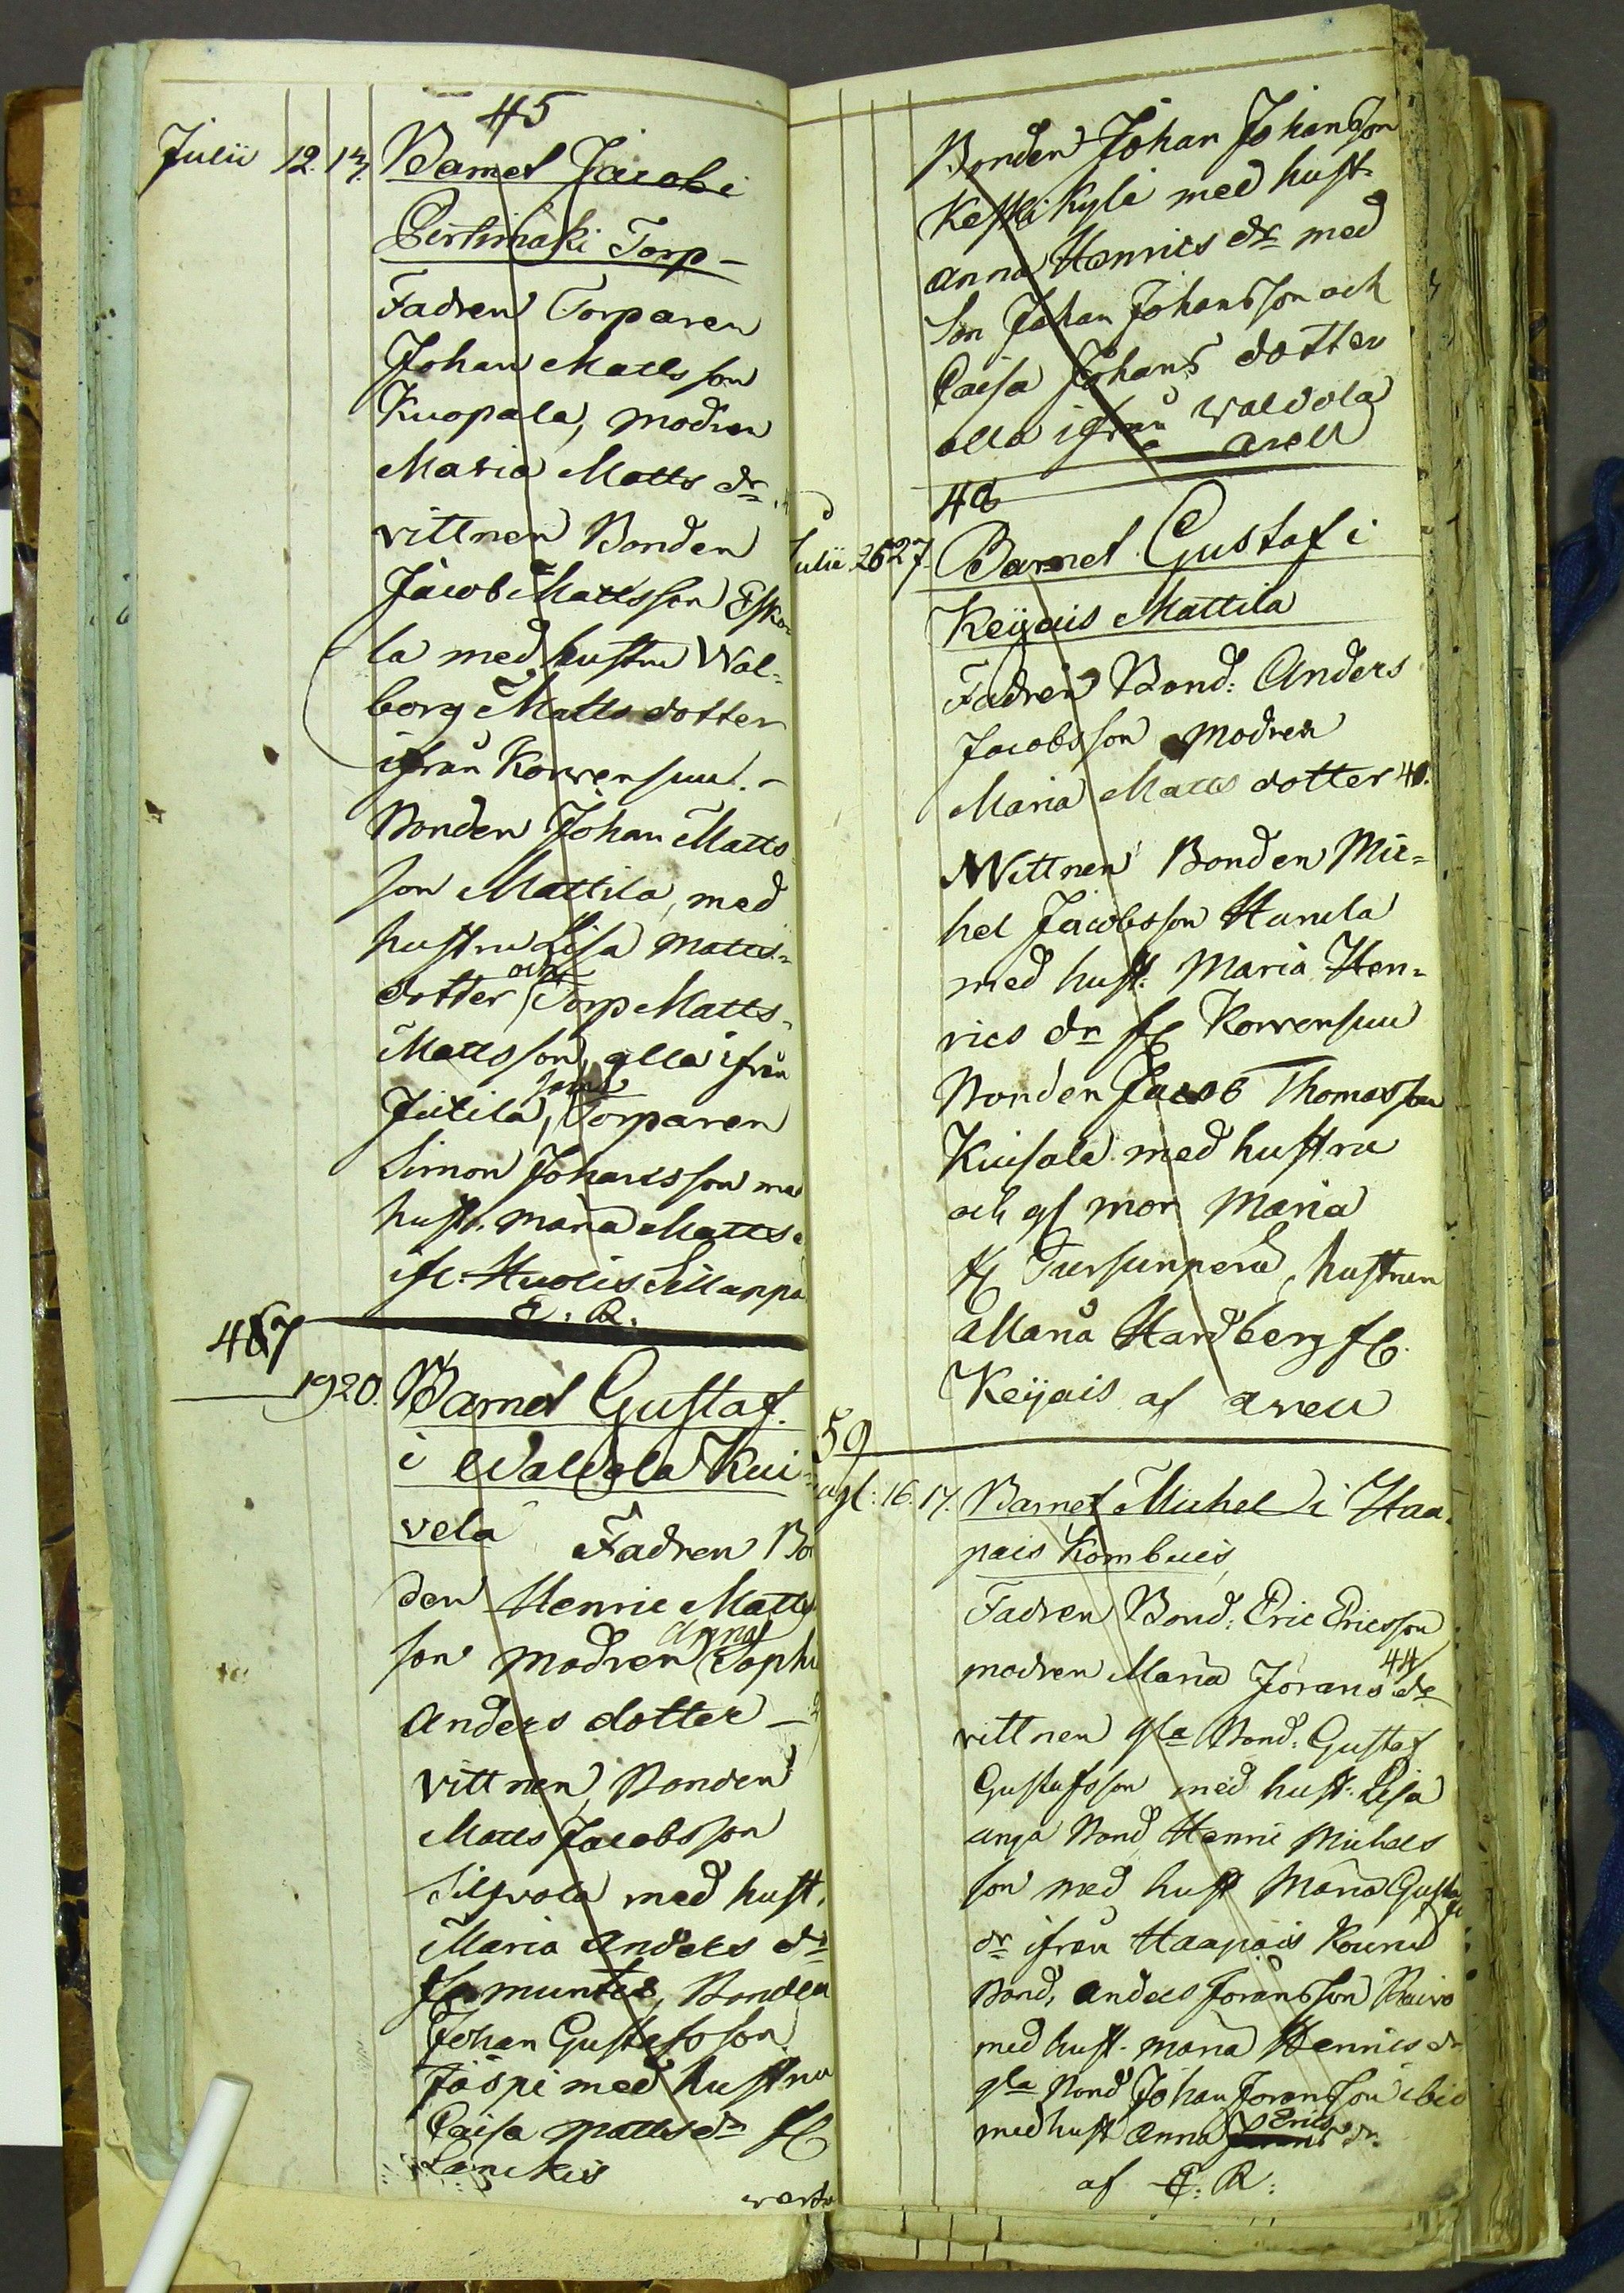 45
Julii 12. 13. Barnet Jacob i
Pertimäki Torp -
Fadren Torparen
Johan Matts son
Kuopala, modren
Maria Matts dr
vittnen Bonden
Jacob Mattsson Esko
la med hustru Wal-
borg Matts dotter
ifrån Korvensuu. -
Bonden Johan Matts
son Mattila, med
hustru Lisa Matts-
dotter och Torp Matts
Mattsson, alla ifrån
Jutila, Torparen
Simon Johansson med
hustr. Maria Matts
ifr. Huolis Sillanpä
E: R.
467
19 20. Barnet Gustaf
i Waldola Kui-
vela Fadren Bo
den Henric Matts
son modren Anna Soph
Anders dotter -
vittnen, Bonden
Matts Jacobsson
Silfvola med hust.
Maria Anders dr
fr Muntis, Bonden
Johan Gustafsson
Jäspi med hustru
Caisa Matts dr fr
Lanckis
vertr
Bonden Johan Johansson
Keskikylä med hust.
Anna Henrics dr med
Son Johan Johansson och
Caisa Johans dotter
alla ifrån Waldola
Arell
48
Julii 26 27. Barnet Gustaf i
Keijais Mattila
Fadren Bond: Anders
Jacobsson modren
Maria Matts dotter 40.
Wittnen Bonden Mic-
hel Jacobsson Hanula
med hust. Maria Hen-
rics dr fr Korvensuu
Bonden Jacob Thomasson
Kuisala med hustru
och gl mor Maria
fr Tursunperä, hustrun
Maria Hardberg fr.
Keijais af Arell
59
Aug: 16. 17. Barnet Michel i Haa-
pais Kombuis,
Fadren Bond: Eric Ericsson
modren Maria Jörans dr 44
vittnen gla Bond: Gustaf
Gustafsson med hust. Lisa
unga Bond Henric Michels
son med hust Maria Gustafs
dr ifrån Haapais
Bond, Anders Jöransson
med hust. Maria Henrics dr
gla Bond Johan Joransson ibid
med hust Anna Erics dr
af E: R: